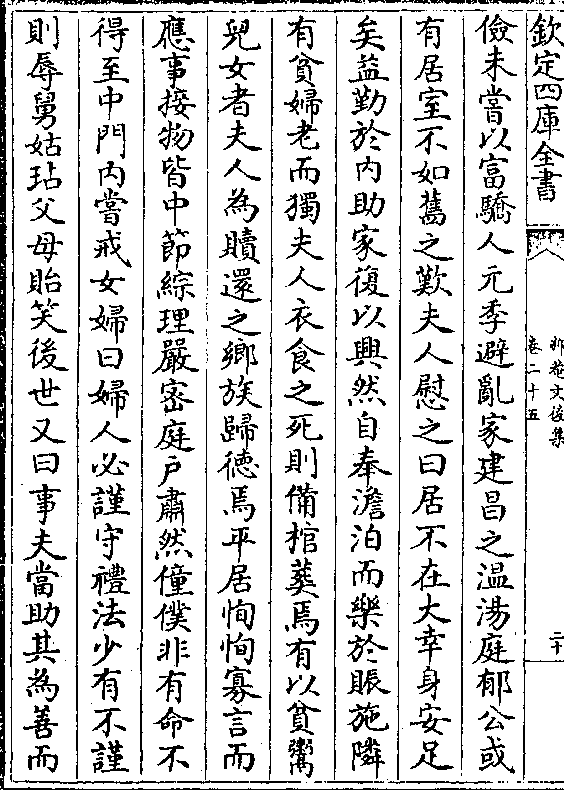 欽定四庫全書
抑菴文後集
卷二十五
二十
儉未嘗以富驕人元季避亂家建昌之温湯庭郁公或
有居室不如舊之歎夫人慰之曰居不在大幸身安足
矣益勤於内助家復以興然自奉澹泊而樂於賑施隣
有貧婦老而獨夫人衣食之死則備棺葬焉有以貧鬻
兒女者夫人為贖還之鄉族歸徳焉平居恂恂寡言而
應事接物皆中節綜理嚴宻庭户肅然僮僕非有命不
得至中門内嘗戒女婦曰婦人必謹守禮法少有不謹
則辱舅姑玷父母貽笑後世又曰事夫當助其為善而